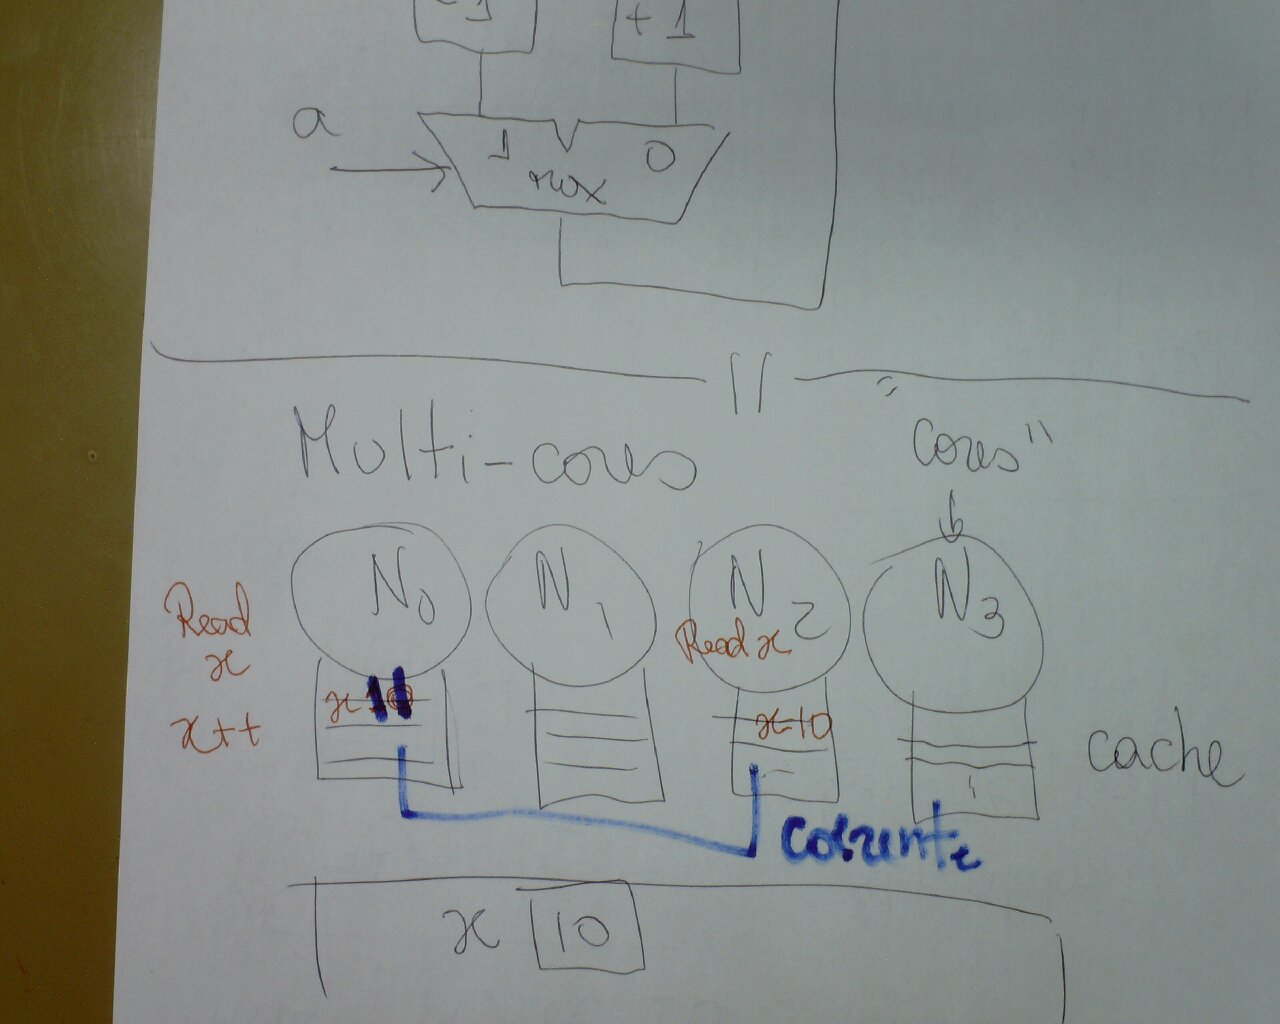 -1 +1
a
1 0
mux
Multi-cores
"cores"
N0 N1 N2 N3
Read
x
x++
Read x
x 11
x 10
cache
coerente
x 10